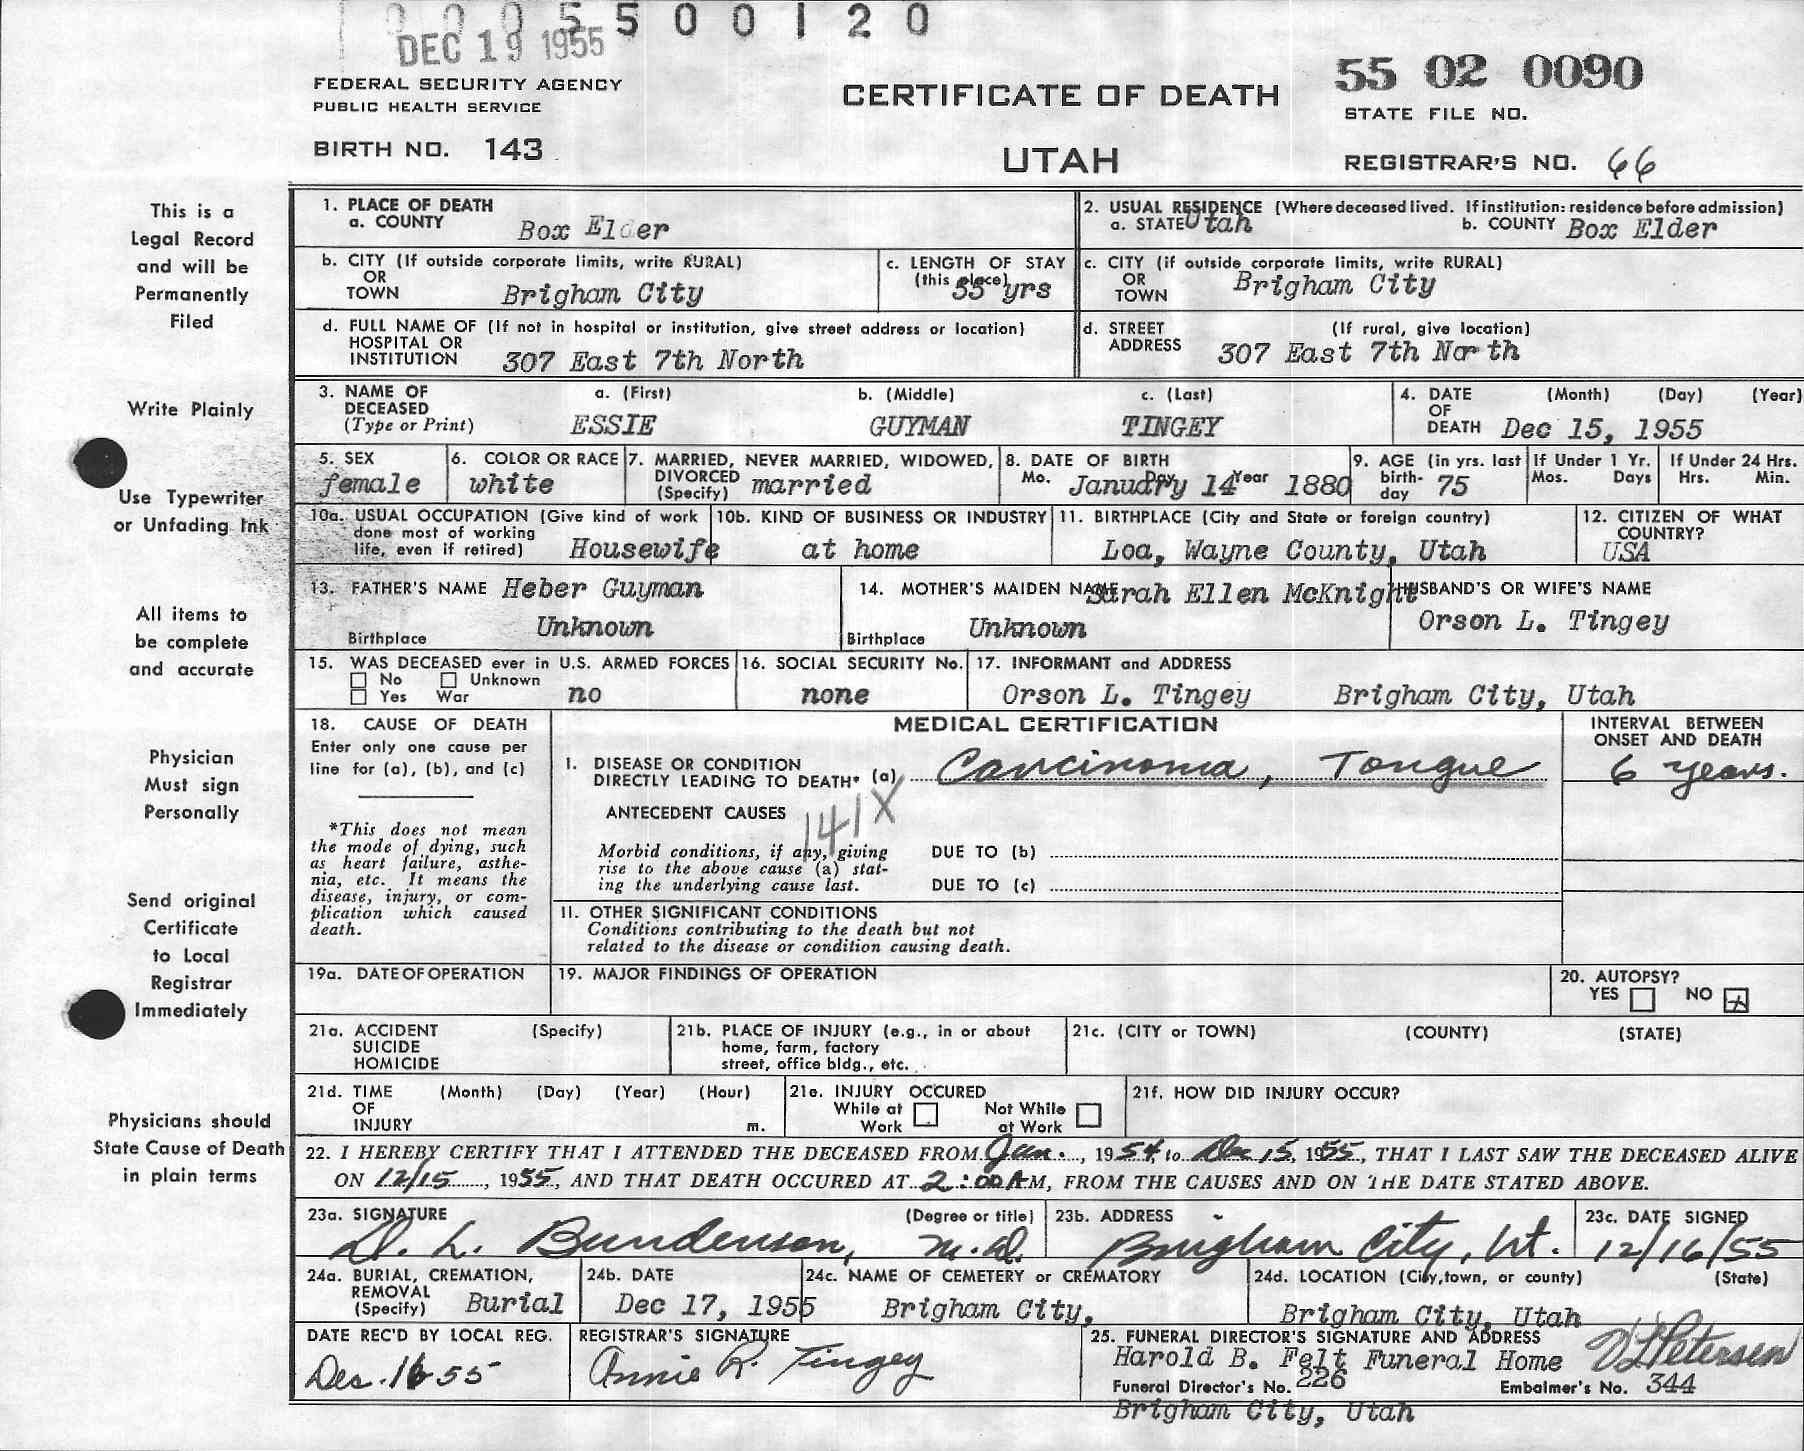 0 0 0 5 5 0 0 1 2 0
DEC 19 1955
FEDERAL SECURITY AGENCY
PUBLIC HEALTH SERVICE
BIRTH NO. 143
CERTIFICATE OF DEATH
UTAH
55 02 0090
STATE FILE NO.
REGISTRAR'S NO. 66
This is a
Legal Record
and will be
Permanently
Filed
Write Plainly
Use Typewriter
or Unfading Ink
All items to
be complete
and accurate
Physician
Must sign
Personally
Send original
Certificate
to Local
Registrar
Immediately
Physicians should
State Cause of Death
in plain terms
1. PLACE OF DEATH
a. COUNTY Box Elder
2. USUAL RESIDENCE (Where deceased lived. If institution: residence before admission)
a. STATE Utah b. COUNTY Box Elder
b. CITY (If outside corporate limits, write RURAL)
OR
TOWN Brigham City
c. LENGTH OF STAY
(this place) 55 yrs
c. CITY (if outside corporate limits, write RURAL)
OR
TOWN Brigham City
d. FULL NAME OF (If not in hospital or institution, give street address or location)
HOSPITAL OR
INSTITUTION 307 East 7th North
d. STREET (If rural, give location)
ADDRESS 307 East 7th North
3. NAME OF a. (First) b. (Middle) c. (Last)
DECEASED
(Type or Print) ESSIE GUYMAN TINGEY
4. DATE (Month) (Day) (Year)
OF
DEATH Dec 15, 1955
5. SEX
female
6. COLOR OR RACE
white
7. MARRIED, NEVER MARRIED, WIDOWED,
DIVORCED
(Specify) married
8. DATE OF BIRTH
Mo. Day Year
January 14 1880
9. AGE (in yrs. last
birth-
day 75
If Under 1 Yr.
Mos. Days
If Under 24 Hrs.
Hrs. Min.
10a. USUAL OCCUPATION (Give kind of work
done most of working
life, even if retired) Housewife
10b. KIND OF BUSINESS OR INDUSTRY
at home
11. BIRTHPLACE (City and State or foreign country)
Loa, Wayne County, Utah
12. CITIZEN OF WHAT
COUNTRY?
USA
13. FATHER'S NAME Heber Guyman
Birthplace Unknown
14. MOTHER'S MAIDEN NAME Sarah Ellen McKnight
Birthplace Unknown
HUSBAND'S OR WIFE'S NAME
Orson L. Tingey
15. WAS DECEASED ever in U.S. ARMED FORCES
No Unknown
Yes War no
16. SOCIAL SECURITY No.
none
17. INFORMANT and ADDRESS
Orson L. Tingey Brigham City, Utah
18. CAUSE OF DEATH
Enter only one cause per
line for (a), (b), and (c)
*This does not mean
the mode of dying, such
as heart failure, asthe-
nia, etc. It means the
disease, injury, or com-
plication which caused
death.
MEDICAL CERTIFICATION
INTERVAL BETWEEN
ONSET AND DEATH
I. DISEASE OR CONDITION
DIRECTLY LEADING TO DEATH* (a) Carcinoma, Tongue 6 years.
ANTECEDENT CAUSES
141X
Morbid conditions, if any, giving
rise to the above cause (a) stat-
ing the underlying cause last.
DUE TO (b)
DUE TO (c)
II. OTHER SIGNIFICANT CONDITIONS
Conditions contributing to the death but not
related to the disease or condition causing death.
19a. DATE OF OPERATION
19. MAJOR FINDINGS OF OPERATION
20. AUTOPSY?
YES NO X
21a. ACCIDENT (Specify)
SUICIDE
HOMICIDE
21b. PLACE OF INJURY (e.g., in or about
home, farm, factory
street, office bldg., etc.
21c. (CITY or TOWN) (COUNTY) (STATE)
21d. TIME (Month) (Day) (Year) (Hour)
OF
INJURY m.
21e. INJURY OCCURED
While at Work Not While at Work
21f. HOW DID INJURY OCCUR?
22. I HEREBY CERTIFY THAT I ATTENDED THE DECEASED FROM Jan., 1954, to Dec 15, 1955, THAT I LAST SAW THE DECEASED ALIVE
ON 12/15, 1955, AND THAT DEATH OCCURED AT 2:00 A M, FROM THE CAUSES AND ON THE DATE STATED ABOVE.
23a. SIGNATURE (Degree or title)
D. L. Bundenson, M.D.
23b. ADDRESS
Brigham City, Ut.
23c. DATE SIGNED
12/16/55
24a. BURIAL, CREMATION,
REMOVAL
(Specify) Burial
24b. DATE
Dec 17, 1955
24c. NAME OF CEMETERY or CREMATORY
Brigham City,
24d. LOCATION (City, town, or county) (State)
Brigham City, Utah
DATE REC'D BY LOCAL REG.
Dec. 16-55
REGISTRAR'S SIGNATURE
Annie R. Tingey
25. FUNERAL DIRECTOR'S SIGNATURE AND ADDRESS
Harold B. Felt Funeral Home Petersen
Funeral Director's No. 226 Embalmer's No. 344
Brigham City, Utah